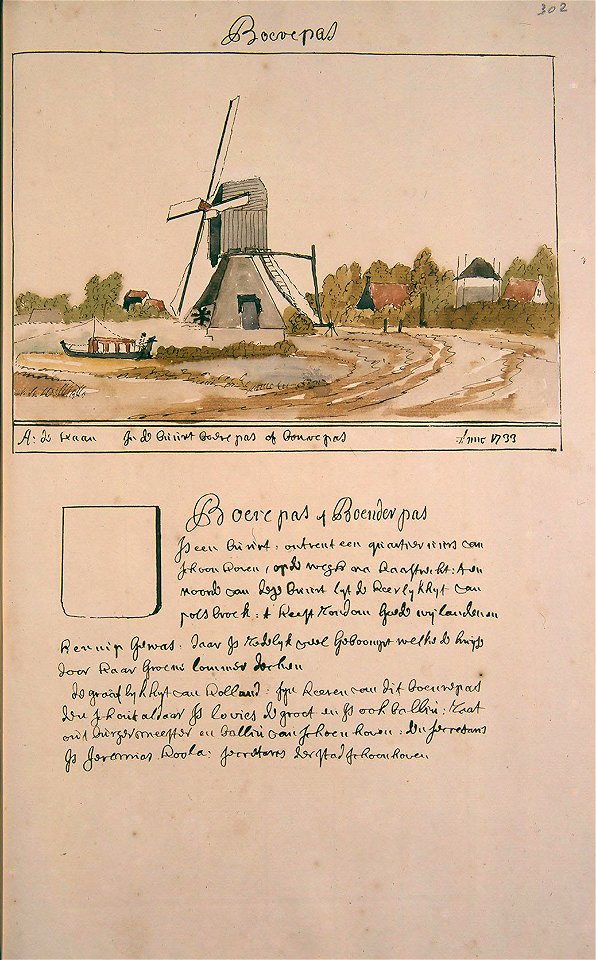 302
Boerepas
A: de Haan In de buurt boere pas of bouwe pas Anno 1733
Boere pas of Boender pas
Is een buurt: ontrent een quartier uiers van
schoon hoven, op de wegh na Haastrecht: ten
noorde van dese buurt lyt de Heerlykhyt van
pols broek: t heeft rondom goede wylanden en
Hennip gewas: daar is redelyk veel geboompt welke de huyse
door haar groene lommer decken
de graaflykhyt van Holland: syn heeren van dit boerepas
den schout aldaar is lovies de groot en is ook balliu: Haat
out burgermeester en balliu van schoenhoven: den secretaris
is Jeremias Hoola: secretares der stad schoonhoven